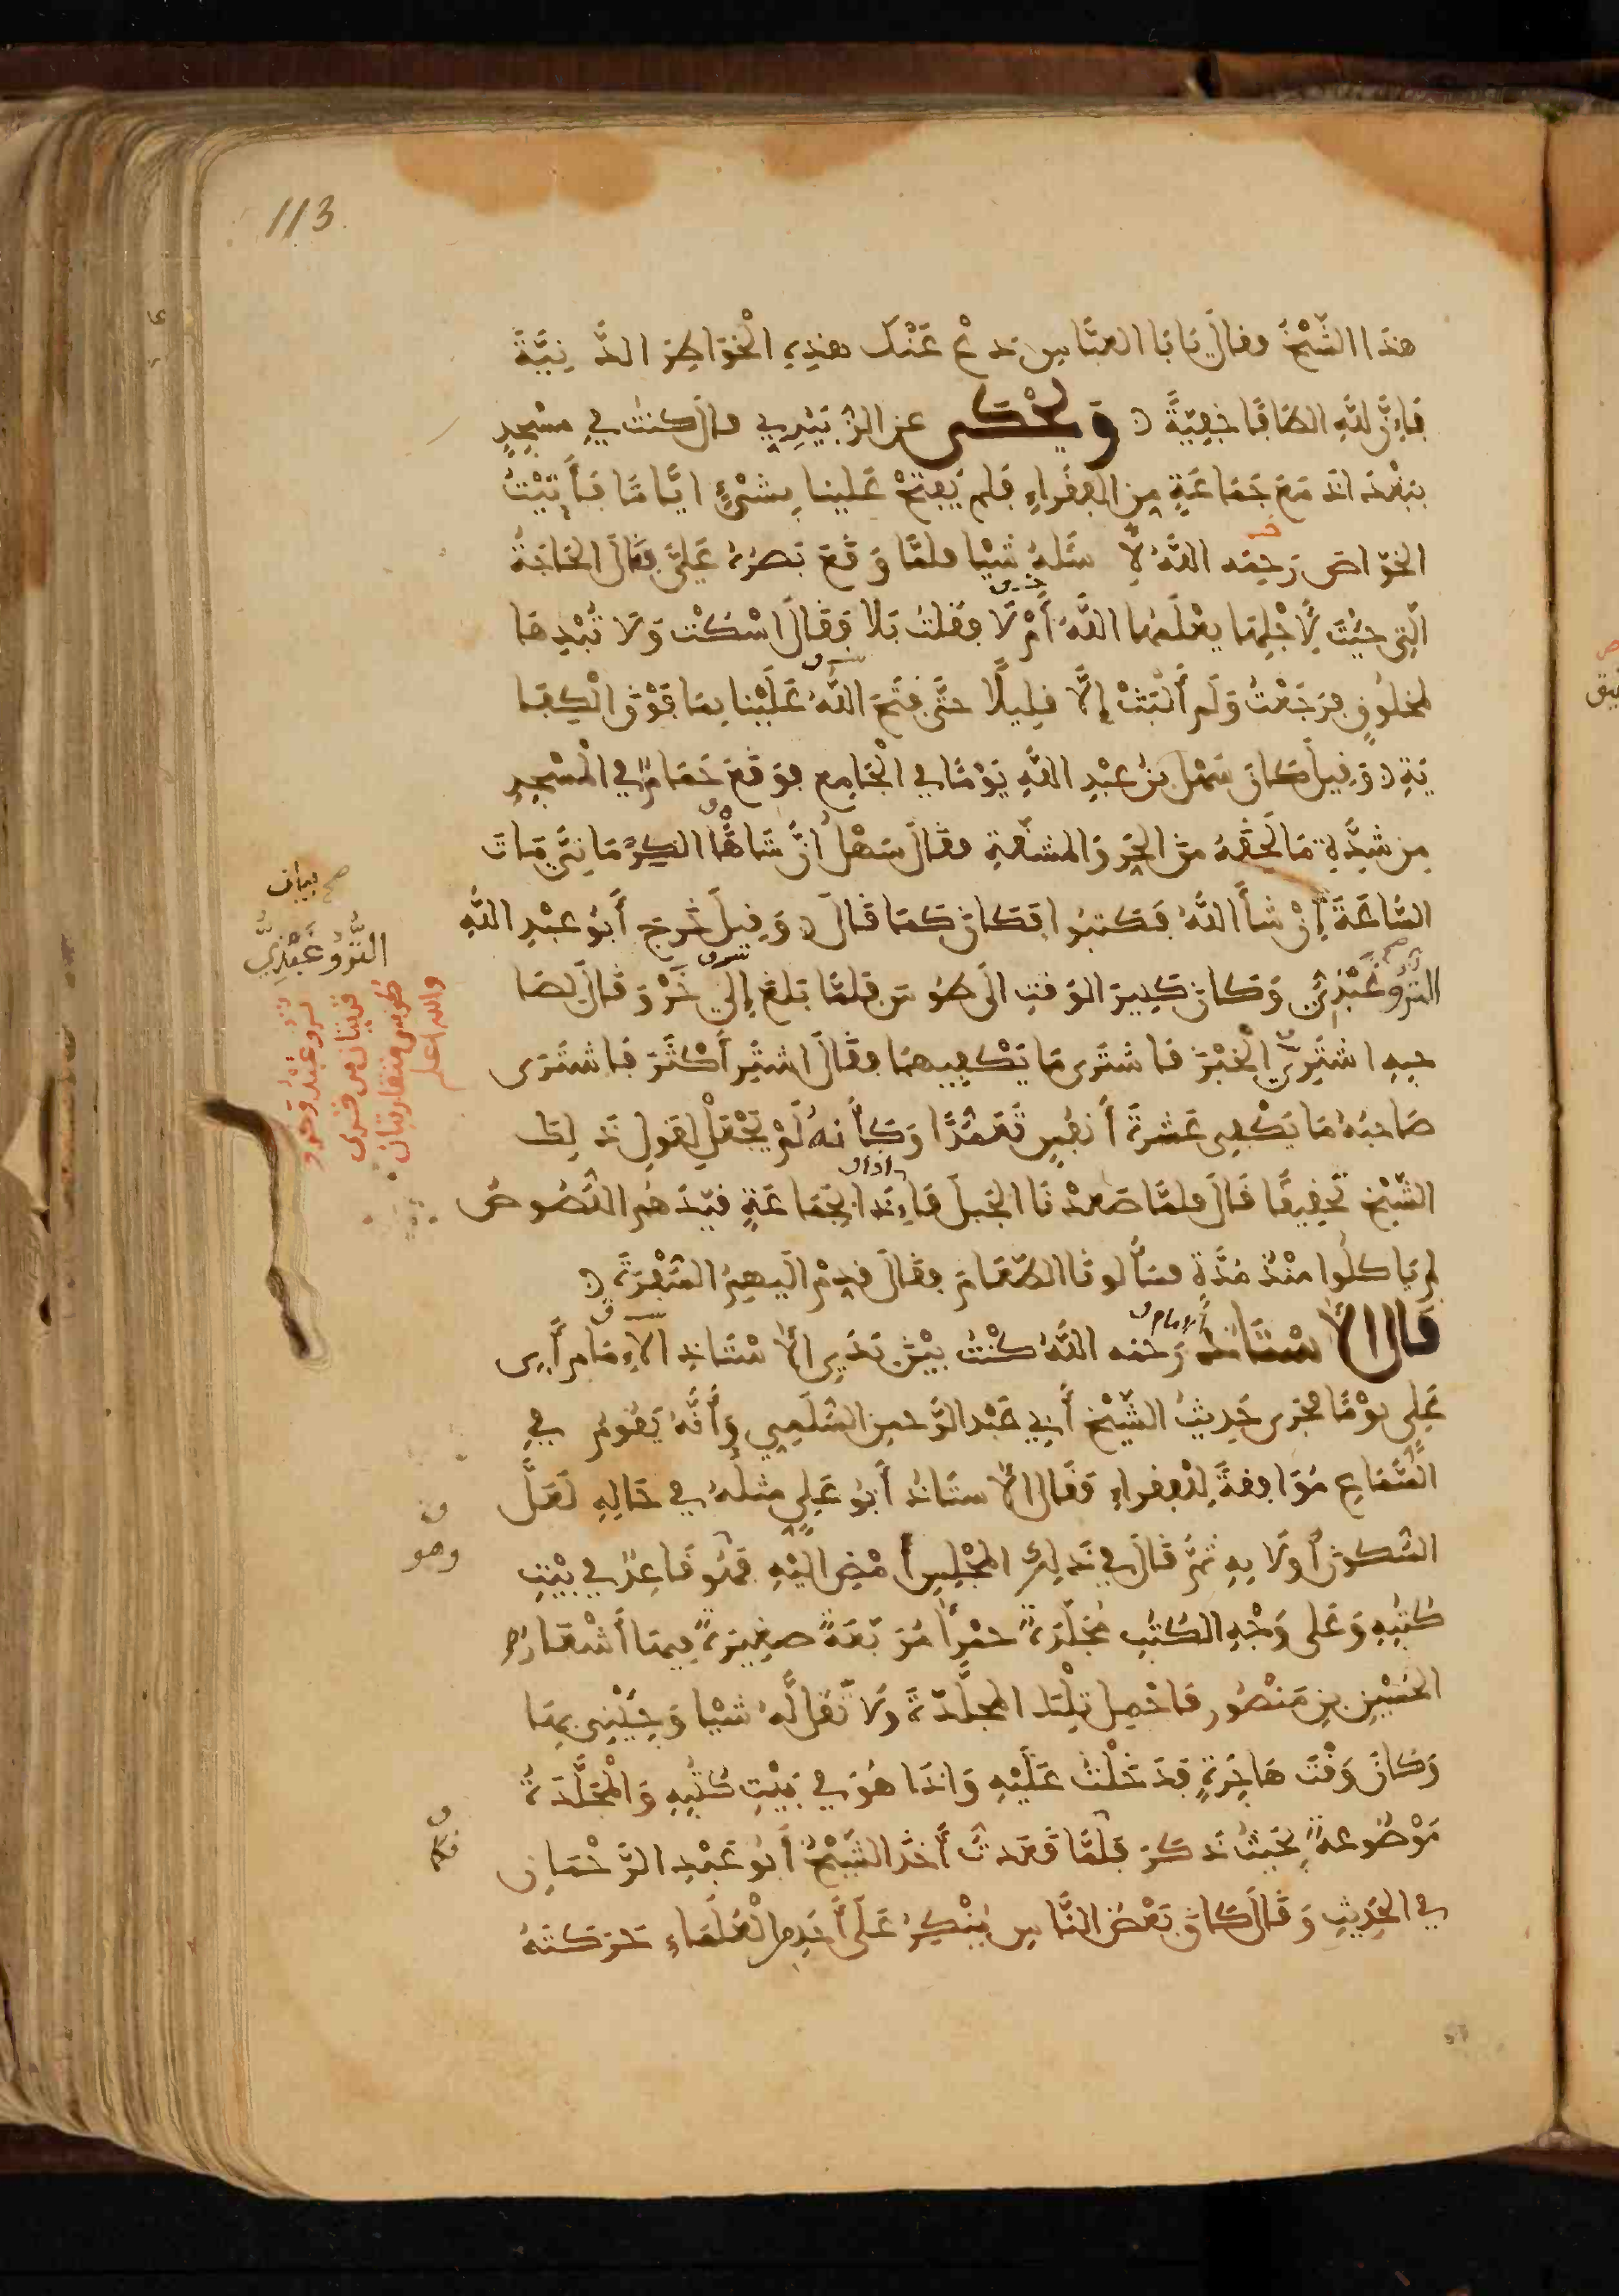 113
هذا الشَّيْخُ وقالَ يَا بَا العبَّاسِ دَعْ عَنْكَ هذِهِ الْخَوَاطِرَ الدَّنِيَّةَ
فَإِنَّ لِلَّهِ الطَافًا خَفِيَّةً وَيُحْكَى عن الزُّبَيْدِي قال كنتُ في مسْجِدِ
ببَغْدَاذ مَعَ جَمَاعَةٍ مِنَ الفقراءِ فَلم يُفتَحْ عَلينا بِشَيْءٍ ايَّامًا فَأَتَيْتُ
الخوّاصَ رَحِمَه اللَّهُ لِأَسْئَلهُ شَيْا فلمَّا وَقَعَ بَصَرُهُ عَلَيَّ فقَالَ الحَاجَةُ
الَّتِي جِئْتَ لِأَجْلِهَا يعْلَمُهَا اللَّهُ أَمْ لَا فقلتُ بَلا فَقَالَ اسْكُتْ وَلَا تُبْدِهَا
لمخلُوقٍ فرَجَعْتُ وَلَم أَلْبَثْ إِلَّا قلِيلًا حتَّى فتَحَ اللَّهُ عَلَيْنا بمَا فَوْقَ الْكِفَا
يَةِ وَقِيلَ كانَ سَهْل بنُ عبْدِ اللَّهِ يَوْمًا في الْجَامِع فوَقَعَ حَمَامٌ في الْمَسْجِدِ
مِن شِدَّةِ مَا لَحِقَهُ مِنَ الحَرِّ وَالمشقّةِ فقَالَ سَهْلُ انَّ شَاهًا الكِرْمَانِيَّ مَاتَ
السَّاعَةَ إِنْ شاَ اللَّهُ فَكتبُوا فَكَانَ كَمَا قَالَ وَقِيلَ خَرجَ أَبُو عبْدِ اللَّهِ
التُّرُوغَبْذِيُّ وَكَانَ كَبِيرَ الوَقتِ الَى طُوسَ فلمَّا بَلغَ إِلَى خَرْوَ قَالَ لصَا
حبِهِ اشتَرِي الْخبْزَ فاشتَرى مَا يَكْفِيهمَا فقَالَ اشتَرِ أَكْثَرَ فاشْتَرَى
صَاحبُهُ مَا يَكْفِي عَشَرةَ أَنفُسٍ تَعَمُّدًا وَكَأَنهُ لَمْ يَجْعَلْ لِقَولِ ذَلِكَ
الشَّيْخِ تَحقِيقًا قَالَ فلمَّا صَعِدْنَا الجَبلَ فَإِذَا بِجَمَاعَةٍ قيّدَهُم اللّصُوصُ
لم يَاكلُوا مُنْذُ مُدَّةٍ فسَأَلونَا الطّعَامَ فقَالَ قدِّمْ اليهِمُ السُّفْرَةَ
قَالَ الأُسْتَاذُ رَحمَه اللَّهُ كنْتُ بَيْنَ يَدَيِ الأُسْتَاذِ الإِمَامِ أَبِي
عَلِي يوْمًا فجَرى حَدِيثُ الشَّيْخِ أَبِي عَبْد الرَّحمنِ السُّلَمِيِّ وَأَنَّهُ يَقُومُ فِي
السَّمَاعِ مُوَافقةً لِلْفقراءِ فَقَال الأُستَاذُ أَبُو عَلِيٍ مثلُهُ فِي حَالِهِ لَعَلَّ
السُّكونَ أَوْلَا بِهِ ثُمَّ قَالَ في ذَلِكَ المجْلِسِ أمْضِ اليْهِ فَهُو قَاعِدٌ في بَيْتِ
كُتُبِهِ وَعَلى وَجْهِ الكُتُبِ مُجَلّدَةٌ حمْرا مُرَبَّعَةٌ صغِيرَةٌ فِيهَا أَشْعَارُ
الحُسَيْنِ بنِ مَنْصُورٍ فاحْمِل تِلْكَ المجلَّدَةَ وَلَا تَقُل لَّهُ شَيْا وَجِئْنِي بِهَا
وَكَانَ وَقْتَ هَاجِرَةٍ فَدَخَلْتُ عَلَيْهِ وَاذَا هُوَ في بَيْتِ كُتُبِهِ وَالْمُجَلَّدَةُ
مَوْضُوعةٌ بِحَيْثُ ذَكَرَ فلَمَّا قَعَدتُّ أَخَذَ الشَّيْخُ أَبُو عَبْدِ الرَّحْمَانِ
في الحَدِيثِ وَقَالَ كَانَ بَعْضُ النَّاسِ يُنْكِرُ عَلَى أَحَدِ مِنَ الْعُلَمَاءِ حَرَكَتَهُ
الامام
صح بيان
التُّرُوغَبْذِيُّ
تروغبذ وخرو
قريتان من قرى
طوس متقاربتان
والله اعلم
وهو